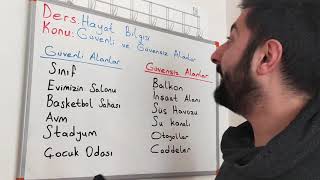 Ders: Hayat Bilgisi
Konu: Güvenli ve Güvensiz Alanlar
Güvenli Alanlar
Sınıf
Evimizin Salonu
Basketbol Sahası
Avm
Stadyum
Çocuk Odası
Güvensiz Alanlar
Balkon
İnşaat Alanı
Süs Havuzu
Su kanalı
Otoyollar
Caddeler